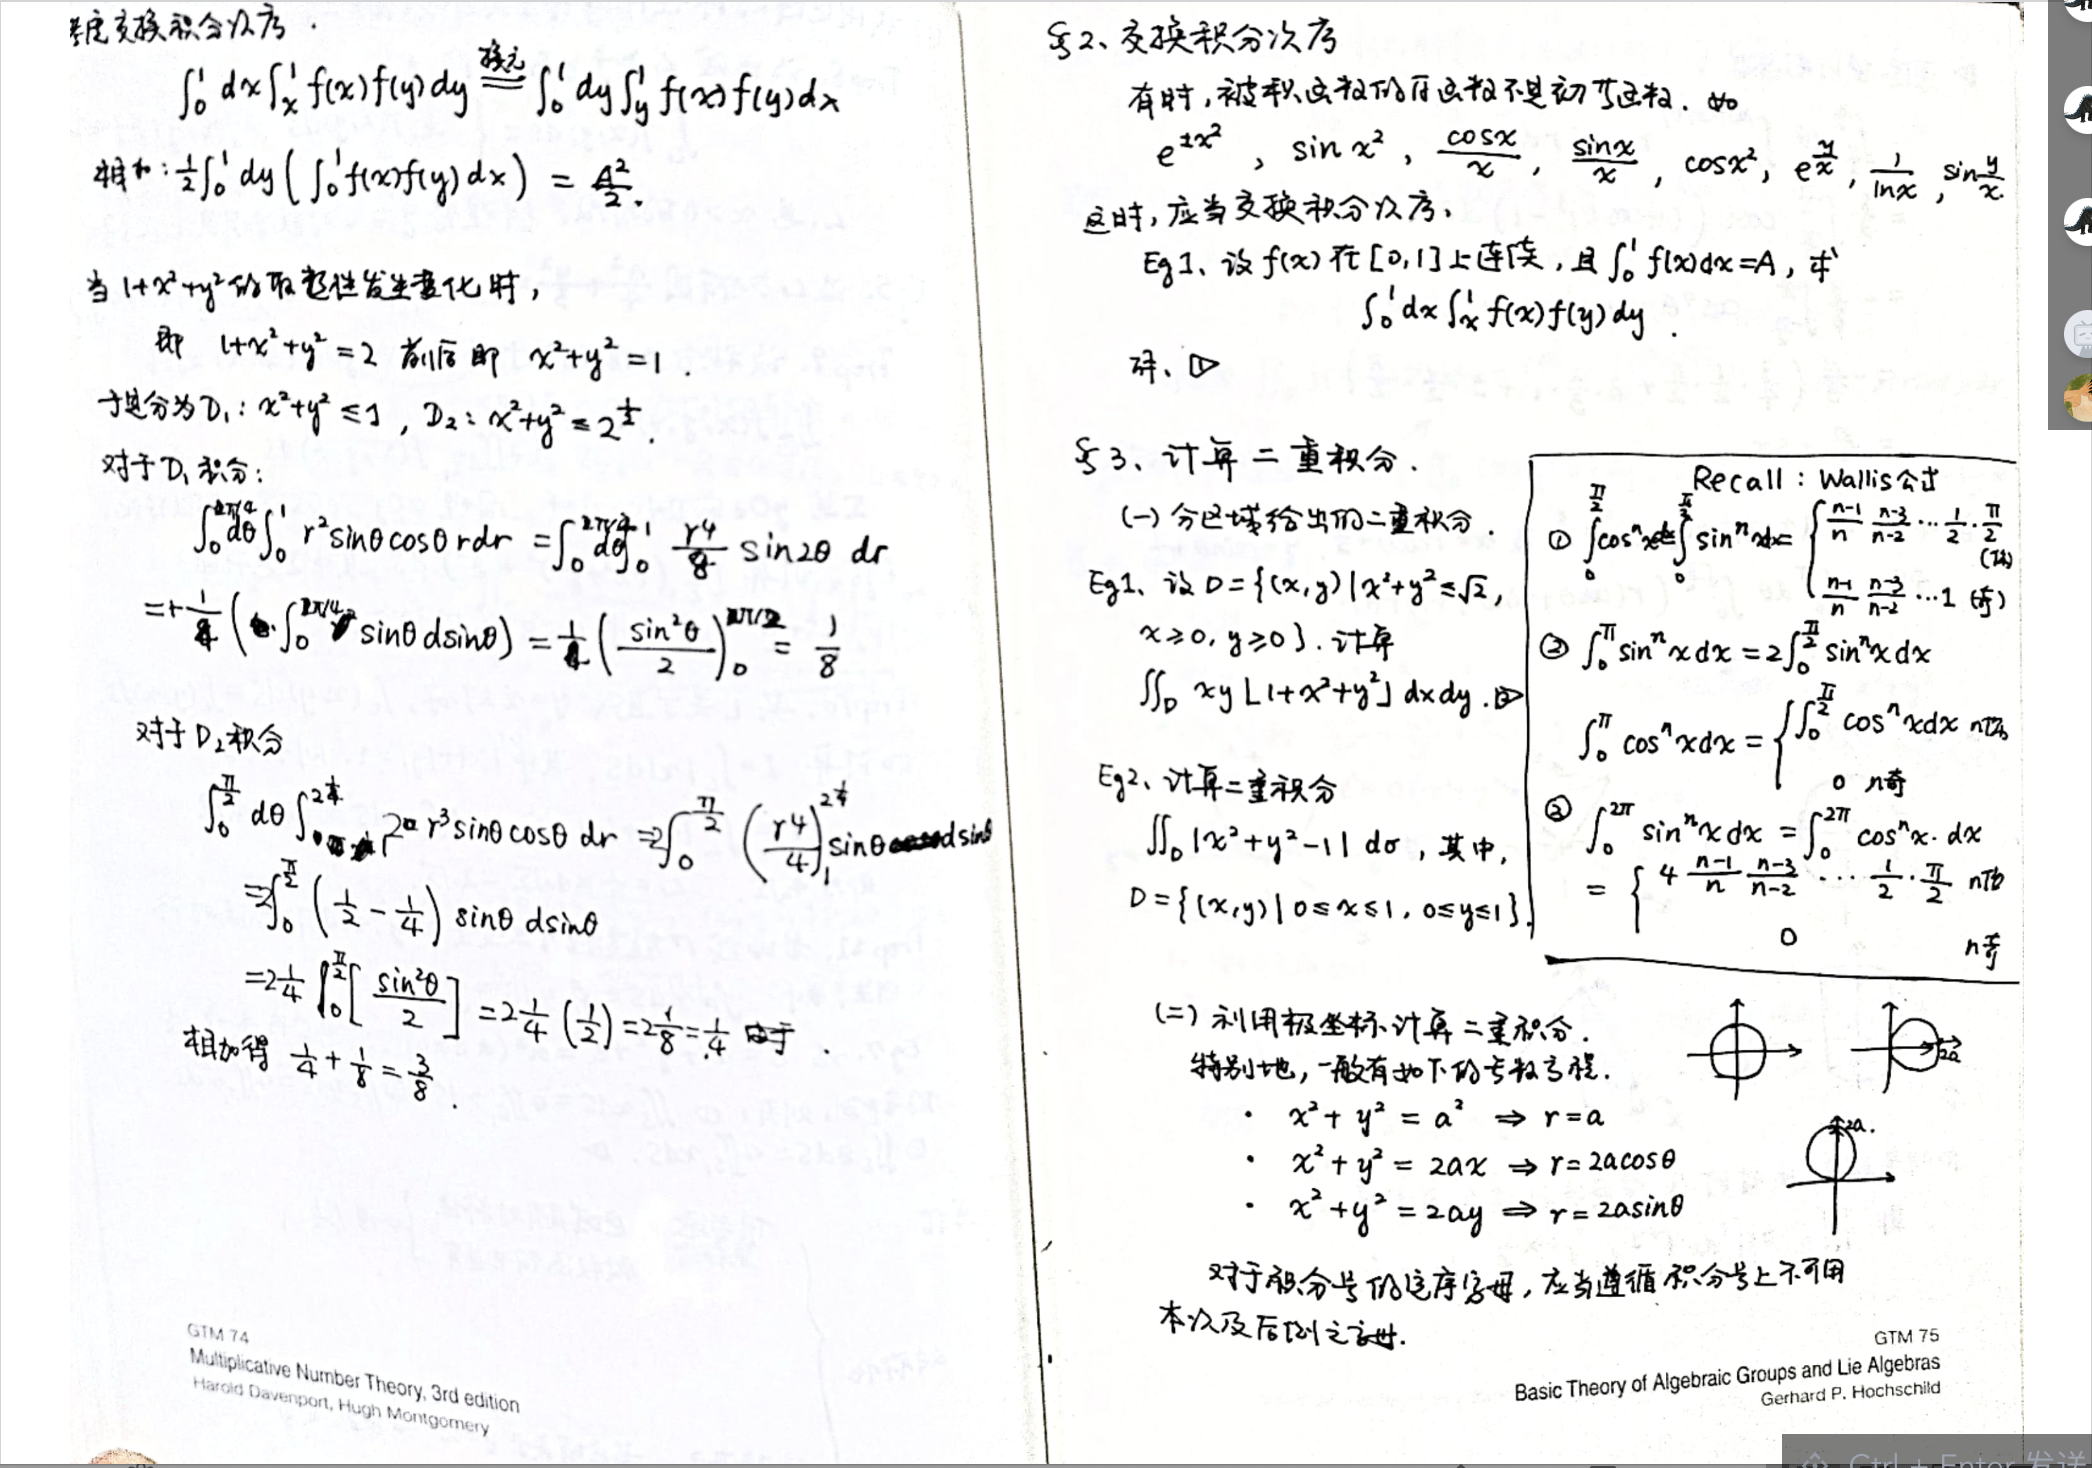 考虑交换积分次序.
∫₀¹dx∫ₓ¹f(x)f(y)dy 换元= ∫₀¹dy∫_y¹f(x)f(y)dx
相加:½∫₀¹dy(∫₀¹f(x)f(y)dx) = A²/2.
当1+x²+y²的取整性发生变化时,
即 1+x²+y²=2 前后即 x²+y²=1.
于是分为D₁: x²+y²≤1, D₂: x²+y²≤2^½.
对于D₁积分:
∫₀^{2π/4}dθ∫₀¹ r²sinθcosθ rdr = ∫₀^{2π/4}dθ∫₀¹ r⁴/8 sin2θ dr
=+1/4(∫₀^{2π/4} sinθdsinθ) = 1/4(sin²θ/2)₀^{π/2} = 1/8
对于D₂积分
∫₀^{π/2}dθ∫^{2^¼} 2 r³sinθcosθ dr =2∫₀^{π/2}(r⁴/4)₁^{2^¼} sinθ dsinθ
=2∫₀^{π/2}(1/2 - 1/4) sinθ dsinθ
=2 1/4 ∫₀^{π/2}[sin²θ/2] =2 1/4(1/2)=2 1/8=1/4
相加得 1/4+1/8=3/8.
GTM 74
Multiplicative Number Theory, 3rd edition
Harold Davenport, Hugh Montgomery
§2、交换积分次序
有时,被积函数的原函数不是初等函数.如
e^{±x²}, sin x², cosx/x, sinx/x, cosx², e^{y/x}, 1/lnx, sin y/x
这时,应当交换积分次序.
Eg1、设f(x)在[0,1]上连续,且∫₀¹f(x)dx=A,求
∫₀¹dx∫ₓ¹f(x)f(y)dy.
详.▷
§3、计算二重积分.
(一)分区域给出的二重积分.
Eg1、设D={(x,y)|x²+y²≤√2,
x≥0,y≥0}.计算
∬_D xy⌊1+x²+y²⌋dxdy.
Eg2、计算二重积分
∬_D |x²+y²-1| dσ,其中,
D={(x,y)|0≤x≤1, 0≤y≤1}.
Recall: Wallis公式
① ∫₀^{π/2}cosⁿxdx=∫₀^{π/2}sinⁿxdx= { n-1/n n-3/n-2 … 1/2·π/2 (偶)
n-1/n n-3/n-2 …1 (奇)
② ∫₀^π sinⁿxdx=2∫₀^{π/2}sinⁿxdx
∫₀^π cosⁿxdx = { ∫₀^{π/2}cosⁿxdx n偶
0 n奇
② ∫₀^{2π} sinⁿxdx = ∫₀^{2π} cosⁿx·dx
= { 4 n-1/n n-3/n-2 … 1/2·π/2 n偶
0 n奇
(二)利用极坐标计算二重积分.
特别地,一般有如下的参数方程.
· x²+y²=a² ⇒ r=a
· x²+y²=2ax ⇒ r=2acosθ
· x²+y²=2ay ⇒ r=2asinθ
2a
2a.
对于积分号的定序字母,应当遵循积分号上不可用
本次及后倒之字母.
GTM 75
Basic Theory of Algebraic Groups and Lie Algebras
Gerhard P. Hochschild
Ctrl + Enter 发送